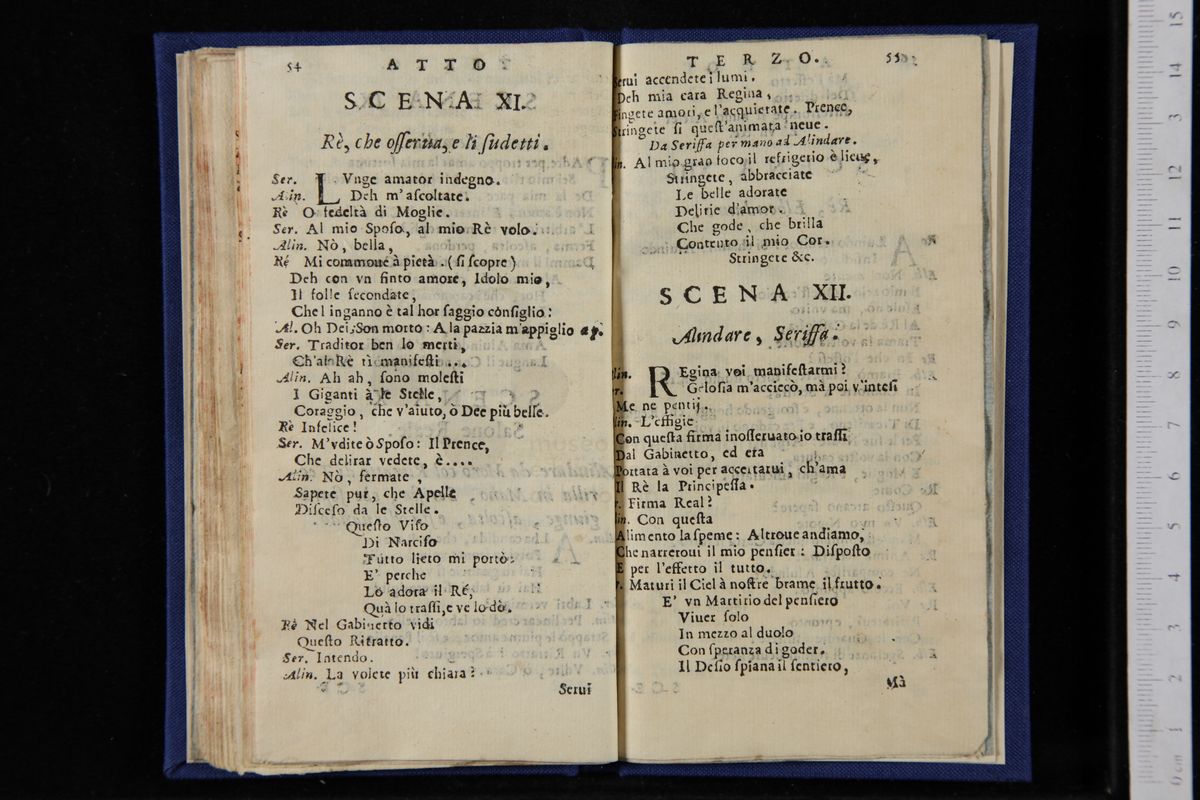 54 ATTO
SCENA XI.
Rè, che osserua, e li sudetti.
Ser. LVnge amator indegno.
Alin. Deh m'ascoltate.
Rè O fedeltà di Moglie.
Ser. Al mio Sposo, al mio Rè volo.
Alin. Nò, bella,
Ré Mi commoué à pietà. (si scopre)
Deh con vn finto amore, Idolo mio,
Il folle secondate,
Che l inganno è tal hor saggio cònsiglio:
Al. Oh Dei; Son morto: A la pazzia m'appiglio
Ser. Traditor ben lo merti,
Ch'al Rè tì manifesti ...
Alin. Ah ah, sono molesti
I Giganti à le Stelle,
Coraggio, che v'aiuto, ò Dee più belle.
Rè Infelice!
Ser. M'vdite ò Sposo: Il Prence,
Che delirar vedete, è....
Alin. Nò, fermate,
Sapete pur, che Apelle
Disceso da le Stelle.
Questo Viso
Di Narciso
Tutto lieto mi portò:
E' perche
Lo adora il Ré,
Quà lo trassi, e ve lo dò.
Rè Nel Gabinetto vidi
Questo Ritratto.
Ser. Intendo.
Alin. La volete più chiara?
Serui
TERZO. 55
Serui accendete i lumi.
Deh mia cara Regina,
Fingete amori, e l'acquietate. Prence,
Stringete sì quest'animata neue.
Da Seriffa per mano ad Alindare.
lin. Al mio gran foco il refrigerio è lieue,
Stringete, abbracciate
Le belle adorate
Delitie d'amor.
Che gode, che brilla
Contento il mio Cor.
Stringete &c.
SCENA XII.
Alindare, Seriffa.
lin. REgina voi manifestarmi?
r. Gelosia m'acciecò, mà poi v'intesi
Me ne pentij.
lin. L'effigie
Con questa firma inosseruato io trassi
Dal Gabinetto, ed era
Portata à voi per accertarui, ch'ama
Il Rè la Principessa.
r. Firma Real?
lin. Con questa
Alimento la speme: Altroue andiamo,
Che narrerouì il mio pensier: Disposto
E per l'effetto il tutto.
r. Maturi il Ciel à nostre brame il frutto.
E' vn Martirio del pensiero
Viuer solo
In mezzo al duolo
Con speranza di goder.
Il Desio spiana il sentiero,
Mà